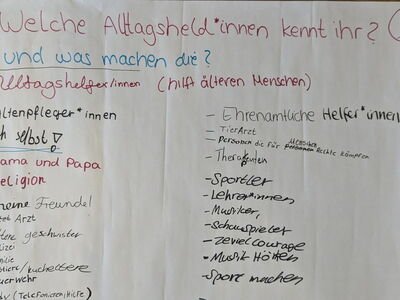 Welche Alltagsheld*innen kennt ihr? (
und was machen die?
Alltagshelfer/innen (hilft älteren Menschen)
ltenpfleger*innen
ch selbst!
ama und Papa
eligion
eine Freunde!
Arzt
tere geschwister
lizei
milie
stiere/kucheltiere
uerwehr
dy (Telefonieren/Hilfe)
- Ehrenamtliche Helfer*innen
- TierArzt
- Personen die für Menschen Rechte kämpfen
- Therapeuten
- Sportler
- Lehrer*innen
- Musiker,
- Schauspieler
- zevielcourage
- Musik Hören
- Sport machen